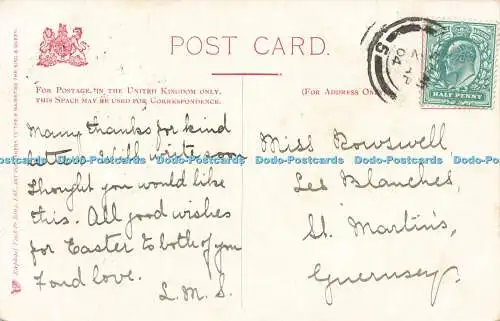 POST CARD.
FOR POSTAGE IN THE UNITED KINGDOM ONLY,
THIS SPACE MAY BE USED FOR CORRESPONDENCE.
(FOR ADDRESS ONLY
HALF PENNY
Many thanks for kind
letter. Will write soon
Thought you would like
this. All good wishes
for Easter to both of you
Fond love.
L.M.S.
Miss Rowswell
Les Blanches,
St. Martin's,
Guernsey.
Dodo-Postcards Dodo-Postcards Dodo-Postcards Dodo-Postcards Dodo-Postcards